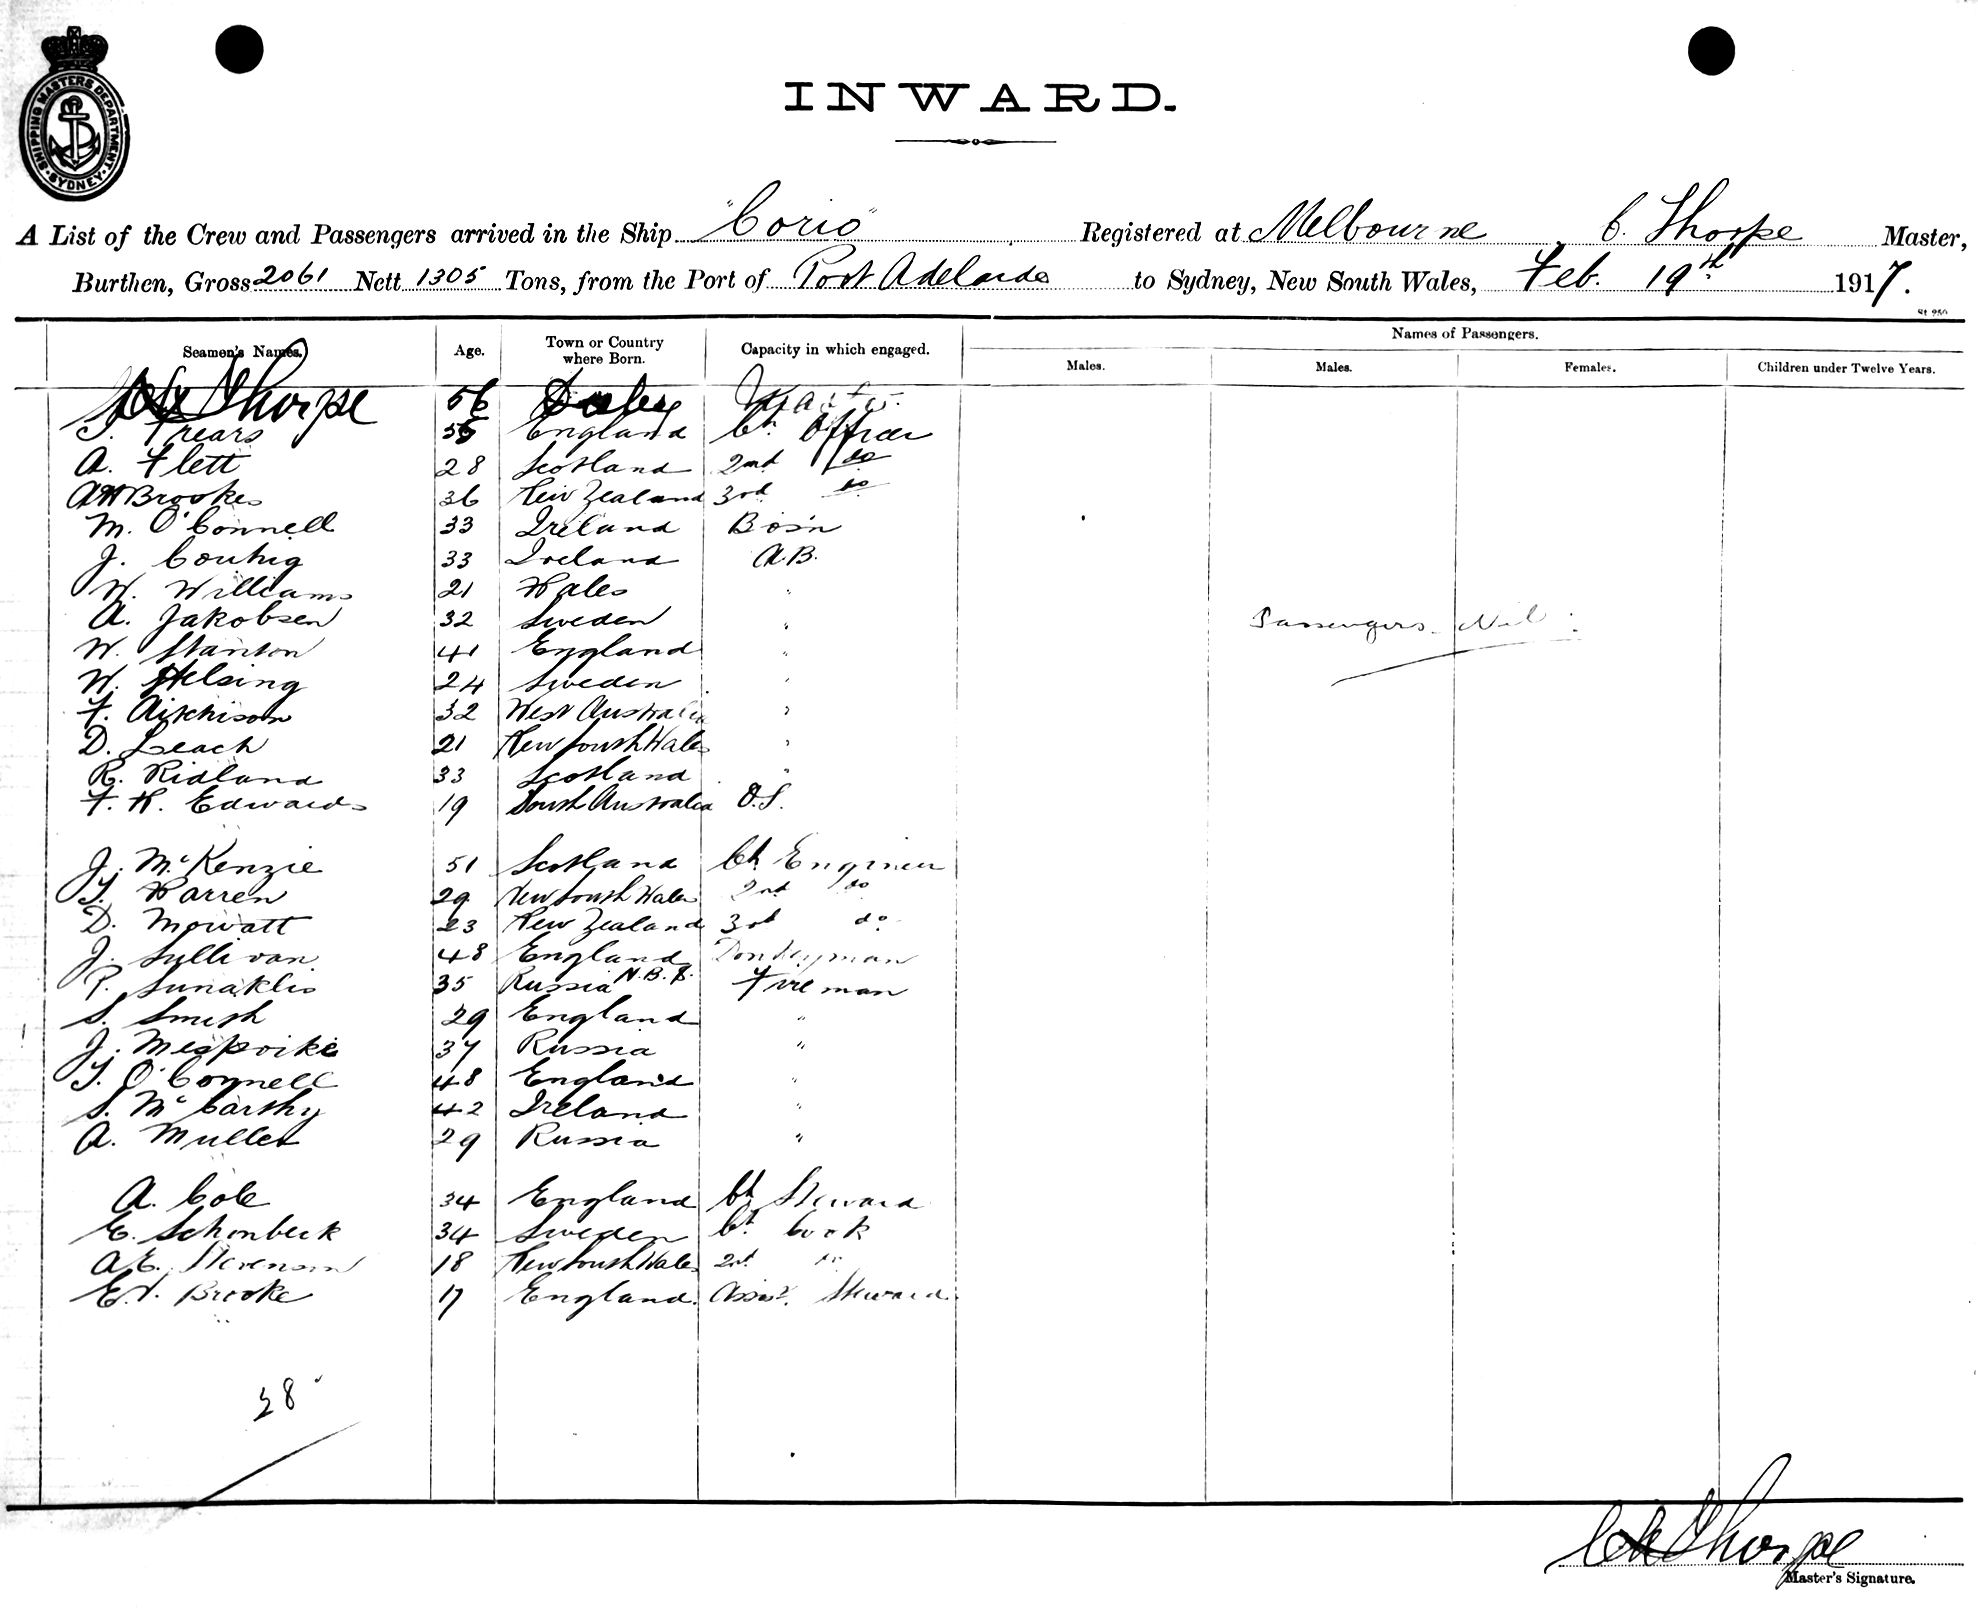 SHIPPING MASTERS DEPARTMENT
SYDNEY
INWARD.
A List of the Crew and Passengers arrived in the Ship "Corio" Registered at Melbourne C. Thorpe Master,
Burthen, Gross 2061 Nett 1305 Tons, from the Port of Port Adelaide to Sydney, New South Wales, Feb. 19th 1917.
St 250
Names of Passengers.
Seamen's Names. Age. Town or Country where Born. Capacity in which engaged. Males. Males. Females. Children under Twelve Years.
Thorpe 56 Master
T. Frears England Ch. Officer
A. Flett 28 Scotland 2nd do
AH Brookes 36 New Zealand 3rd do
M. O'Connell 33 Ireland Bosn
J. Couhig 33 Ireland A.B.
W. Williams 21 Wales "
A. Jakobsen 32 Sweden "
Passengers Nil.
W. Stanton 41 England "
W. Helsing 24 Sweden "
F. Aitchison 32 West Australia "
D. Leach 21 New South Wales "
R. Ridland 33 Scotland "
F. H. Edwards 19 South Australia O.S.
J. McKenzie 51 Scotland Ch Engineer
T. Warren 29 New South Wales 2nd do
D. Mowatt 23 New Zealand 3rd do
J. Sullivan 48 England Donkeyman
P. Sunaklis 35 Russia N.B.S. Fireman
S. Smith 29 England "
J. 37 Russia "
T. O'Connell 48 England "
S. McCarthy 42 Ireland "
A. Muller 29 Russia "
A. Cole 34 England Ch Steward
E. Schonbeck 34 Sweden Ch. Cook
A.E. Stevenson 18 New South Wales 2nd do
E.V. Brooke 17 England. Assist. Steward
28
Thorpe
Master's Signature.